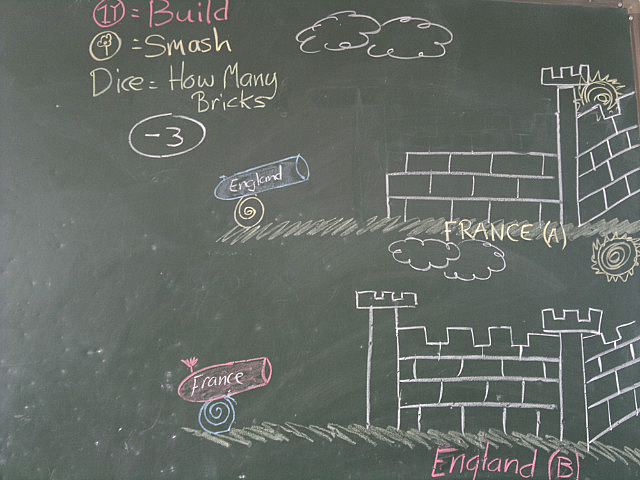 1Y = Build
= Smash
Dice = How Many
Bricks
-3
England
FRANCE (A)
France
England (B)